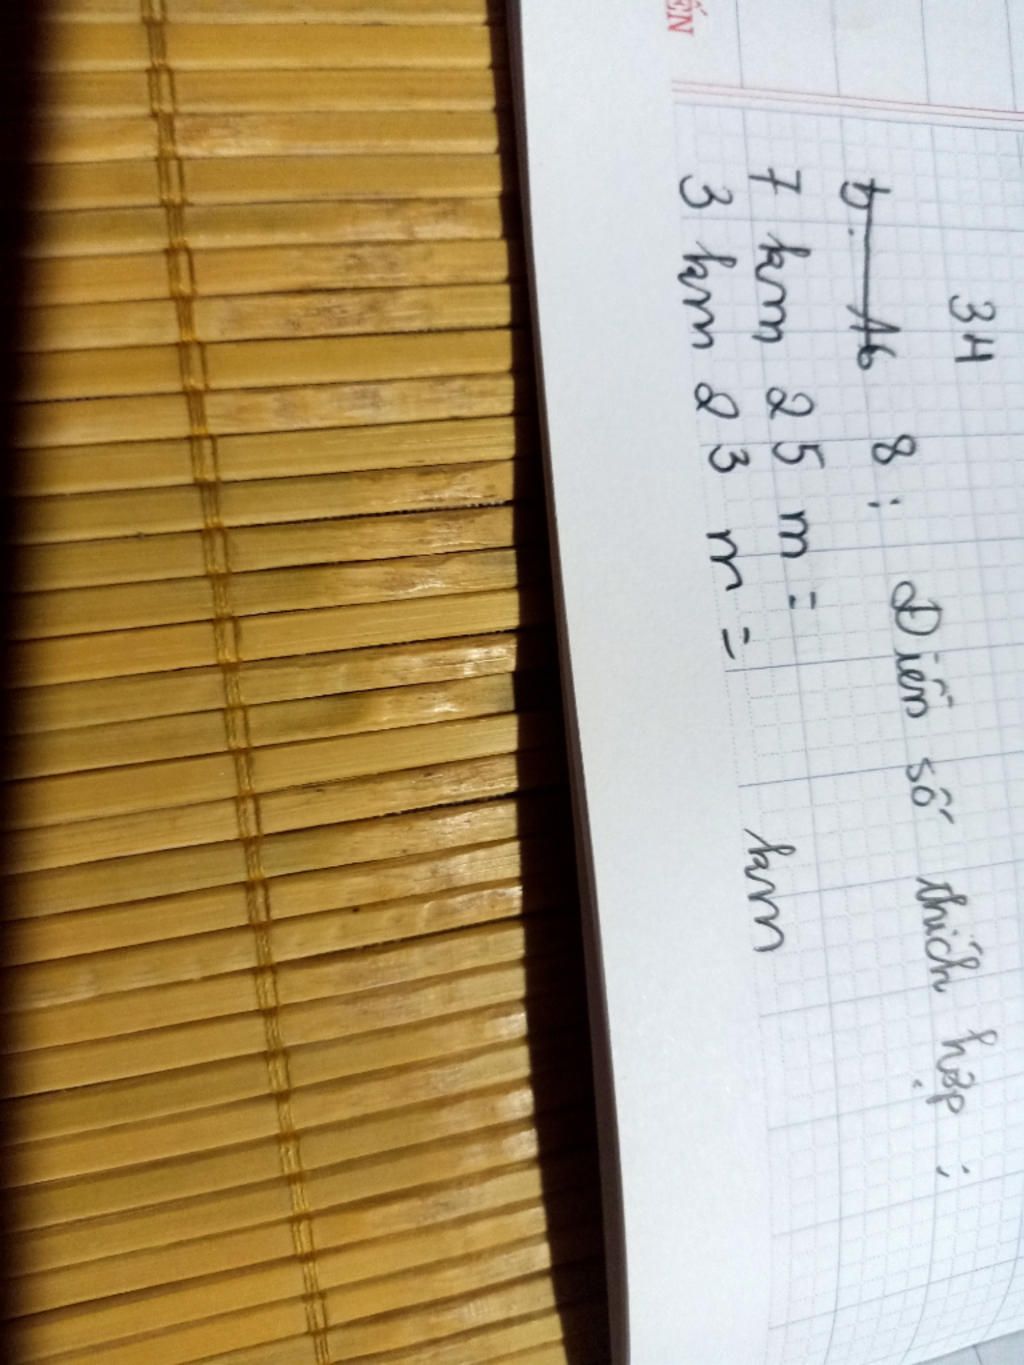 ẾN
34
8 : Điền số thích hợp :
7 km 25 m =
3 km 23 m = km